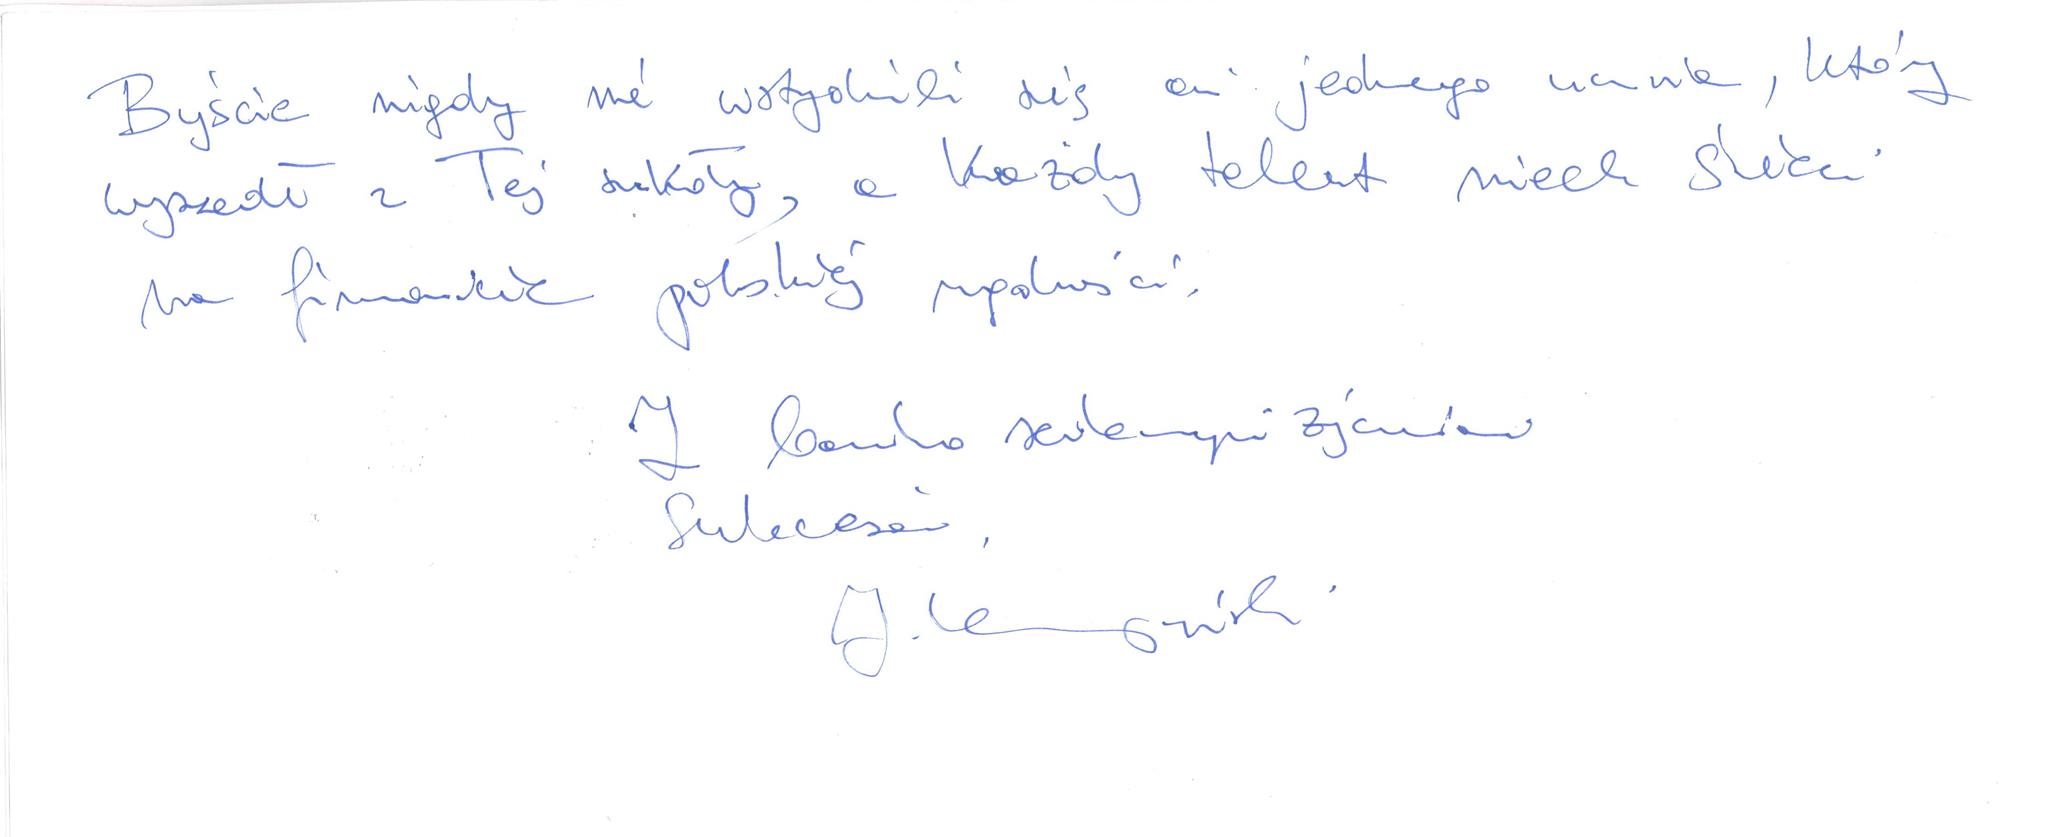 Byście nigdy nie wstydzili się ani jednego ucznia, który
wyszedł z Tej szkoły, a każdy talent niech świeci
na firmamencie polskiej
Z bardzo serdecznymi życzeniami
sukcesów,